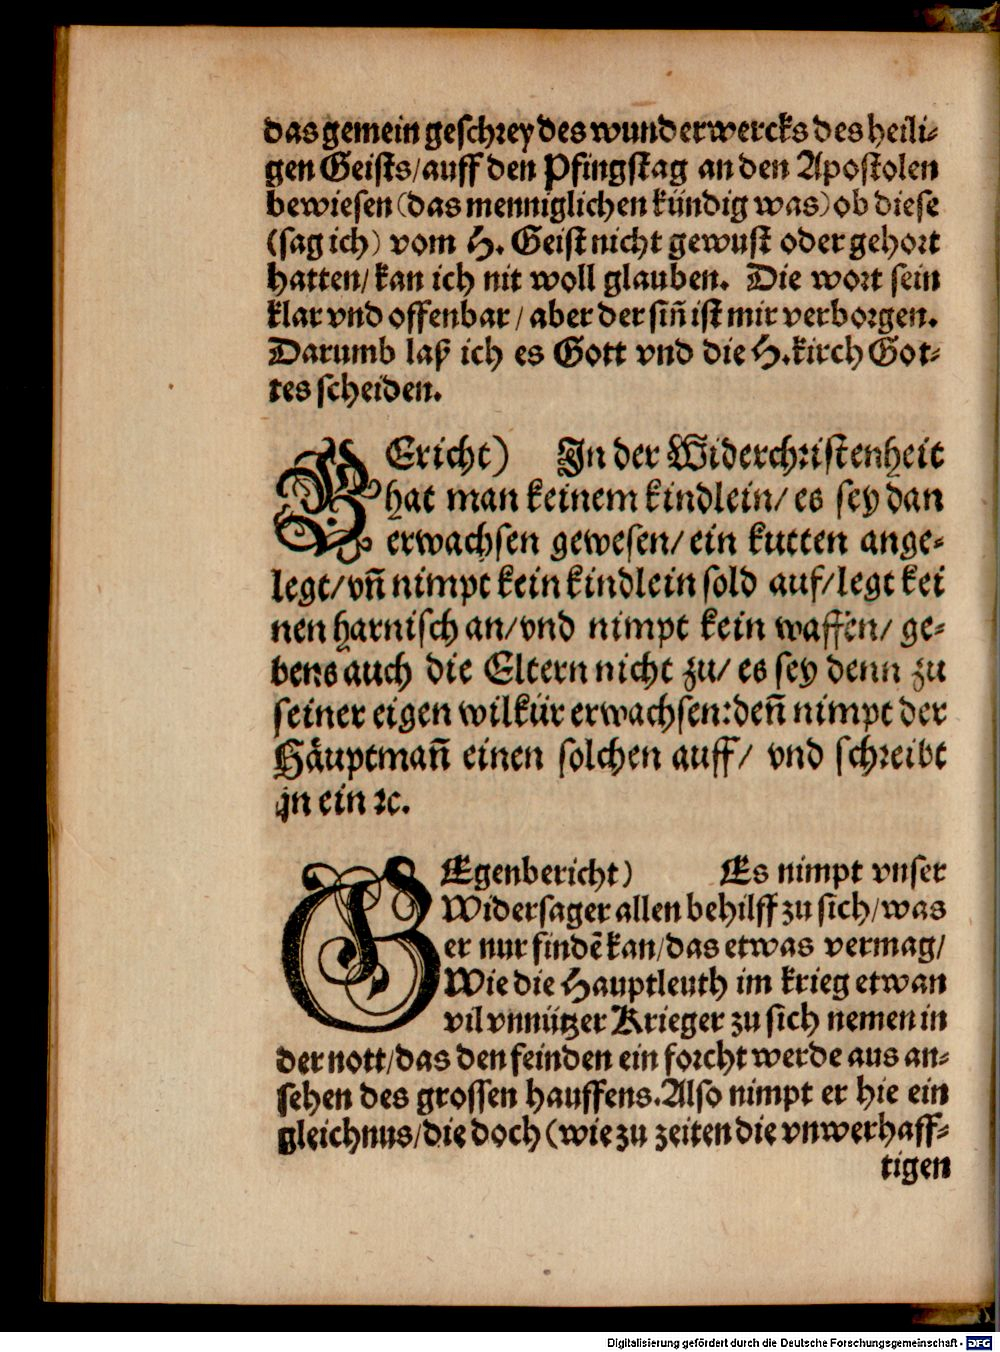 das gemein geschrey des wunderwercks des heili-
gen Geists/auff den Pfingstag an den Apostolen
bewiesen (das menniglichen kündig was) ob diese
(sag ich) vom H. Geist nicht gewust oder gehort
hatten/ kan ich nit woll glauben. Die wort sein
klar vnd offenbar / aber der siñ ist mir verborgen.
Darumb laß ich es Gott vnd die H. kirch Got-
tes scheiden.
BEricht) In der Widerchristenheit
hat man keinem kindlein/ es sey dan
erwachsen gewesen/ ein kutten ange-
legt/ vñ nimpt kein kindlein sold auf/ legt kei
nen harnisch an/ vnd nimpt kein waffen/ ge-
bens auch die Eltern nicht zu/ es sey denn zu
seiner eigen wilkür erwachsen: deñ nimpt der
Häuptmañ einen solchen auff/ vnd schreibt
jn ein ꝛc.
GEgenbericht) Es nimpt vnser
Widersager allen behilff zu sich/ was
er nur findē kan/ das etwas vermag/
Wie die Hauptleuth im krieg etwan
vil vnnützer Krieger zu sich nemen in
der nott/ das den feinden ein forcht werde aus an-
sehen des grossen hauffens. Also nimpt er hie ein
gleichnus/ die doch (wie zu zeiten die vnwerhaff-
tigen
Digitalisierung gefördert durch die Deutsche Forschungsgemeinschaft - DFG